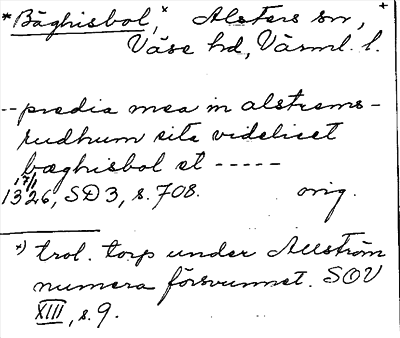 *Bäghisbol,× Alsters sn, +
Väse hd, Värml. l.
-- predia mea in alstrems-
rudhum sita videlicet
bæghisbol et -----
17/1
1326, SD 3, s. 708. orig.
×) trol. torp under Allström
numera försvunnet. SOV
XIII, s. 9.